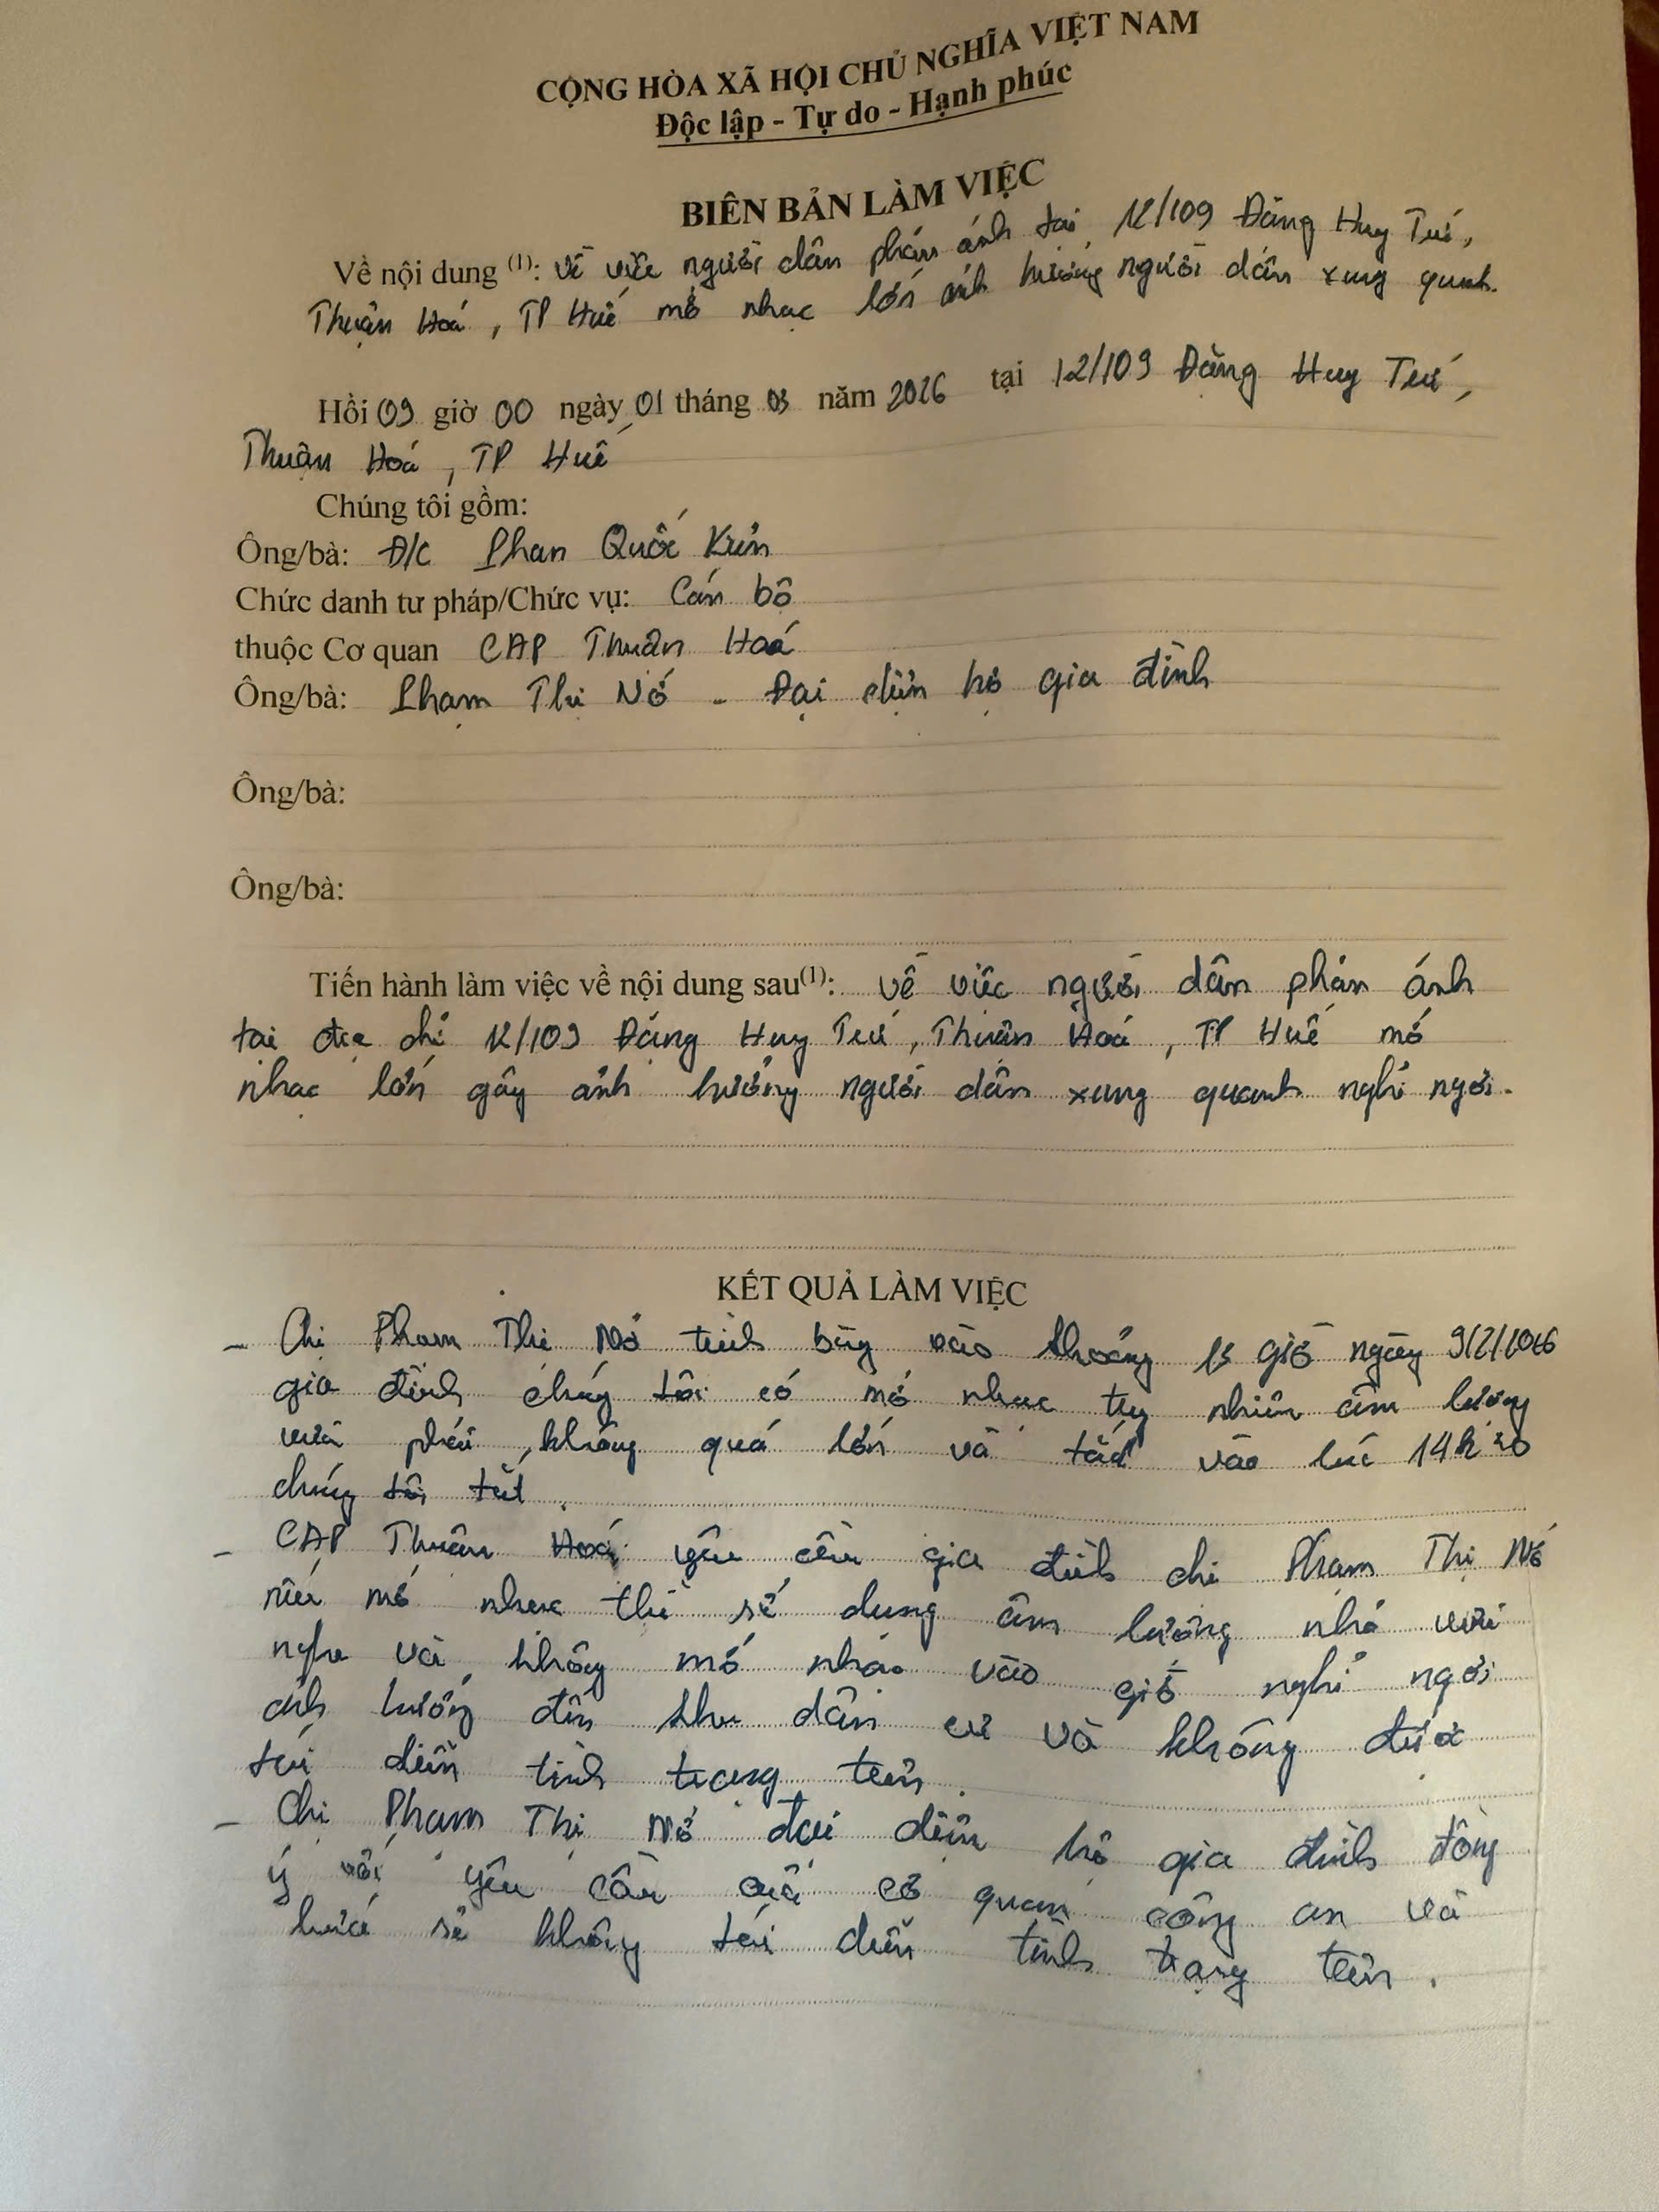 CỘNG HÒA XÃ HỘI CHỦ NGHĨA VIỆT NAM
Độc lập - Tự do - Hạnh phúc
BIÊN BẢN LÀM VIỆC
Về nội dung (1): về việc người dân phản ánh tại 12/109 Đặng Huy Trứ,
Thuận Hoá, TP Huế mở nhạc lớn ảnh hưởng người dân xung quanh.
Hồi 09 giờ 00 ngày 01 tháng 03 năm 2026 tại 12/109 Đặng Huy Trứ,
Thuận Hoá, TP Huế
Chúng tôi gồm:
Ông/bà: Đ/c Phan Quốc
Chức danh tư pháp/Chức vụ: Cán bộ
thuộc Cơ quan CAP Thuận Hoá
Ông/bà: Phạm Thị Nở - Đại diện hộ gia đình
Ông/bà:
Ông/bà:
Tiến hành làm việc về nội dung sau(1): về việc người dân phản ánh
tại địa chỉ 12/109 Đặng Huy Trứ, Thuận Hoá, TP Huế mở
nhạc lớn gây ảnh hưởng người dân xung quanh nghỉ ngơi.
KẾT QUẢ LÀM VIỆC
- Chị Phạm Thị Nở trình bày vào khoảng 13 giờ ngày 9/2/2026
gia đình chúng tôi có mở nhạc tuy nhiên âm lượng
vừa phải, không quá lớn và tắt vào lúc 14h30
chúng tôi tắt.
- CAP Thuận Hoá yêu cầu gia đình chị Phạm Thị Nở
nếu mở nhạc thì sử dụng âm lượng nhỏ vừa
nghe và không mở nhạc vào giờ nghỉ ngơi
ảnh hưởng đến khu dân cư và không được
tái diễn tình trạng trên.
- Chị Phạm Thị Nở đại diện hộ gia đình đồng
ý với yêu cầu của cơ quan công an và
hứa sẽ không tái diễn tình trạng trên.